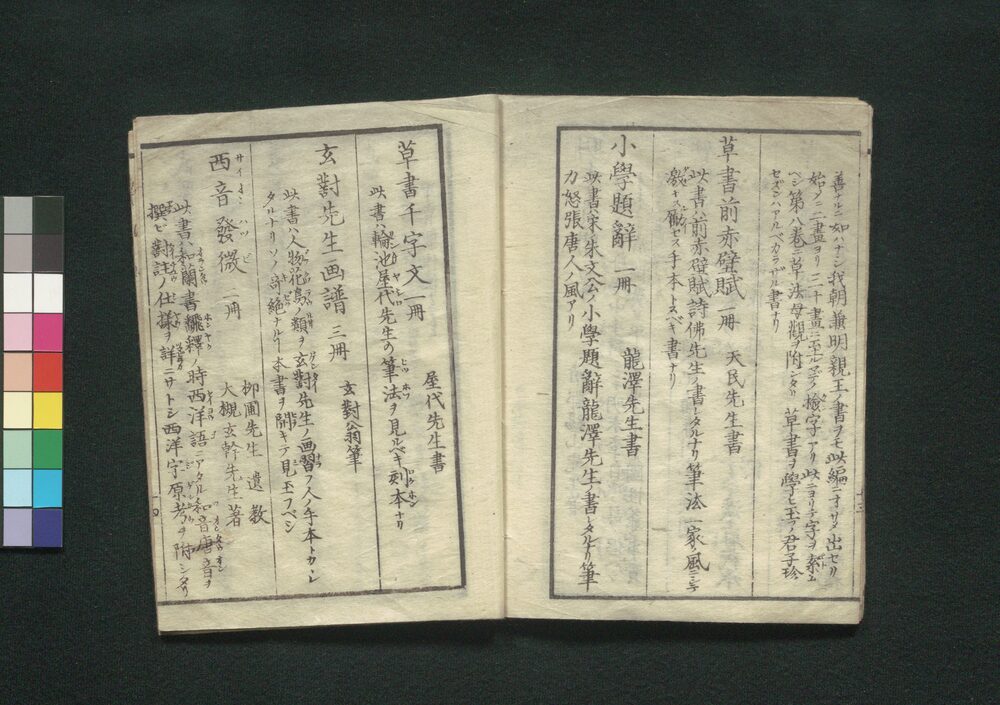 善ナルニ如ハナシ我朝兼明親王ノ書ヲモ此編ニオサメ出セリ
始メノ二畫ヨリ三十畫ニ至ルマテノ檢字アリ此ニヨリテ字ヲ索ム
ベシ第八巻ニ草法母觀ヲ附シタリ 草書ヲ學ヒ玉フノ君子珍
セズンハアルベカラザル書ナリ
草書前赤壁賦 一冊 天民先生書
此書ハ前赤壁賦詩佛先生ノ書レタルナリ筆法一家ノ風ニシテ
激キス働セス手本トスベキ書ナリ
小學題辭 一冊 龍澤先生書
此書ハ宋朱文公ノ小學題辭龍澤先生ノ書レタルナリ筆
力怒張唐人ノ風アリ
草書千字文 一冊 屋代先生書
此書ハ輪池屋代先生の筆法ヲ見ルベキ刻本ナリ
玄對先生画譜 三冊 玄對翁筆
此書ハ人物花鳥ノ類ヲ玄對先生ノ画習フ人ノ手本トカレシ
タルナリソノ奇絶ナルハ本書ヲ開キテ見玉フベシ
西音發微 二冊 柳圃先生 遺教
大槻玄幹先生著
此書ハ和蘭書飜釋ノ時西洋語ニアタル和音唐音ヲ
撰ビ對註ノ仕様ヲ詳ニサトシ西洋字原考ヲ附シタリ